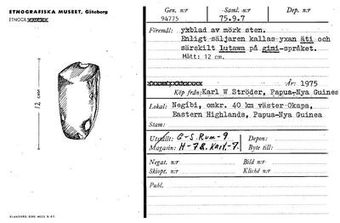 ETNOGRAFISKA MUSEET, Göteborg
12 cm
Gen. nr
94775
Saml. nr
75.9.7
Dep. nr
Föremål: yxblad av mörk sten.
Enligt säljaren kallas yxan äti och
särskilt lutawa på gimi-språket.
Mått: 12 cm.
År: 1975
Köp från: Karl W Ströder, Papua-Nya Guinea
Lokal: Negibi, omkr. 40 km väster Okapa,
Eastern Highlands, Papua-Nya Guinea
Stam:
Utställt: G-S. Rum-9
Magasin: H-7B.
Depon:
Byte till:
Negat. nr
Bild nr
Skiopt. nr
Kliché nr
Publ.